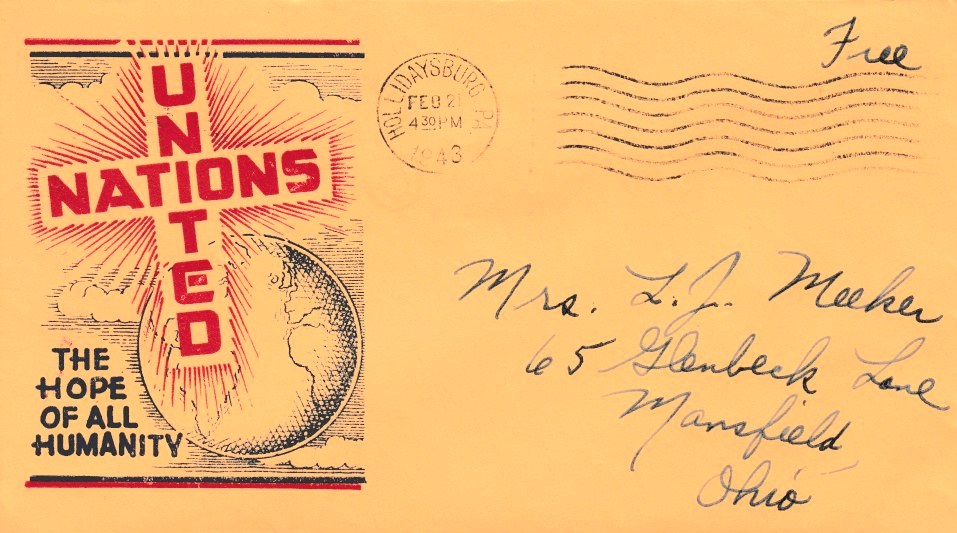 UNITED
NATIONS
THE
HOPE
OF ALL
HUMANITY
HOLLIDAYSBURG PA.
FEB 21
4 30 PM
1943
Free
Mrs. L. J. Meeker
65 Glenbeck Lane
Mansfield
Ohio